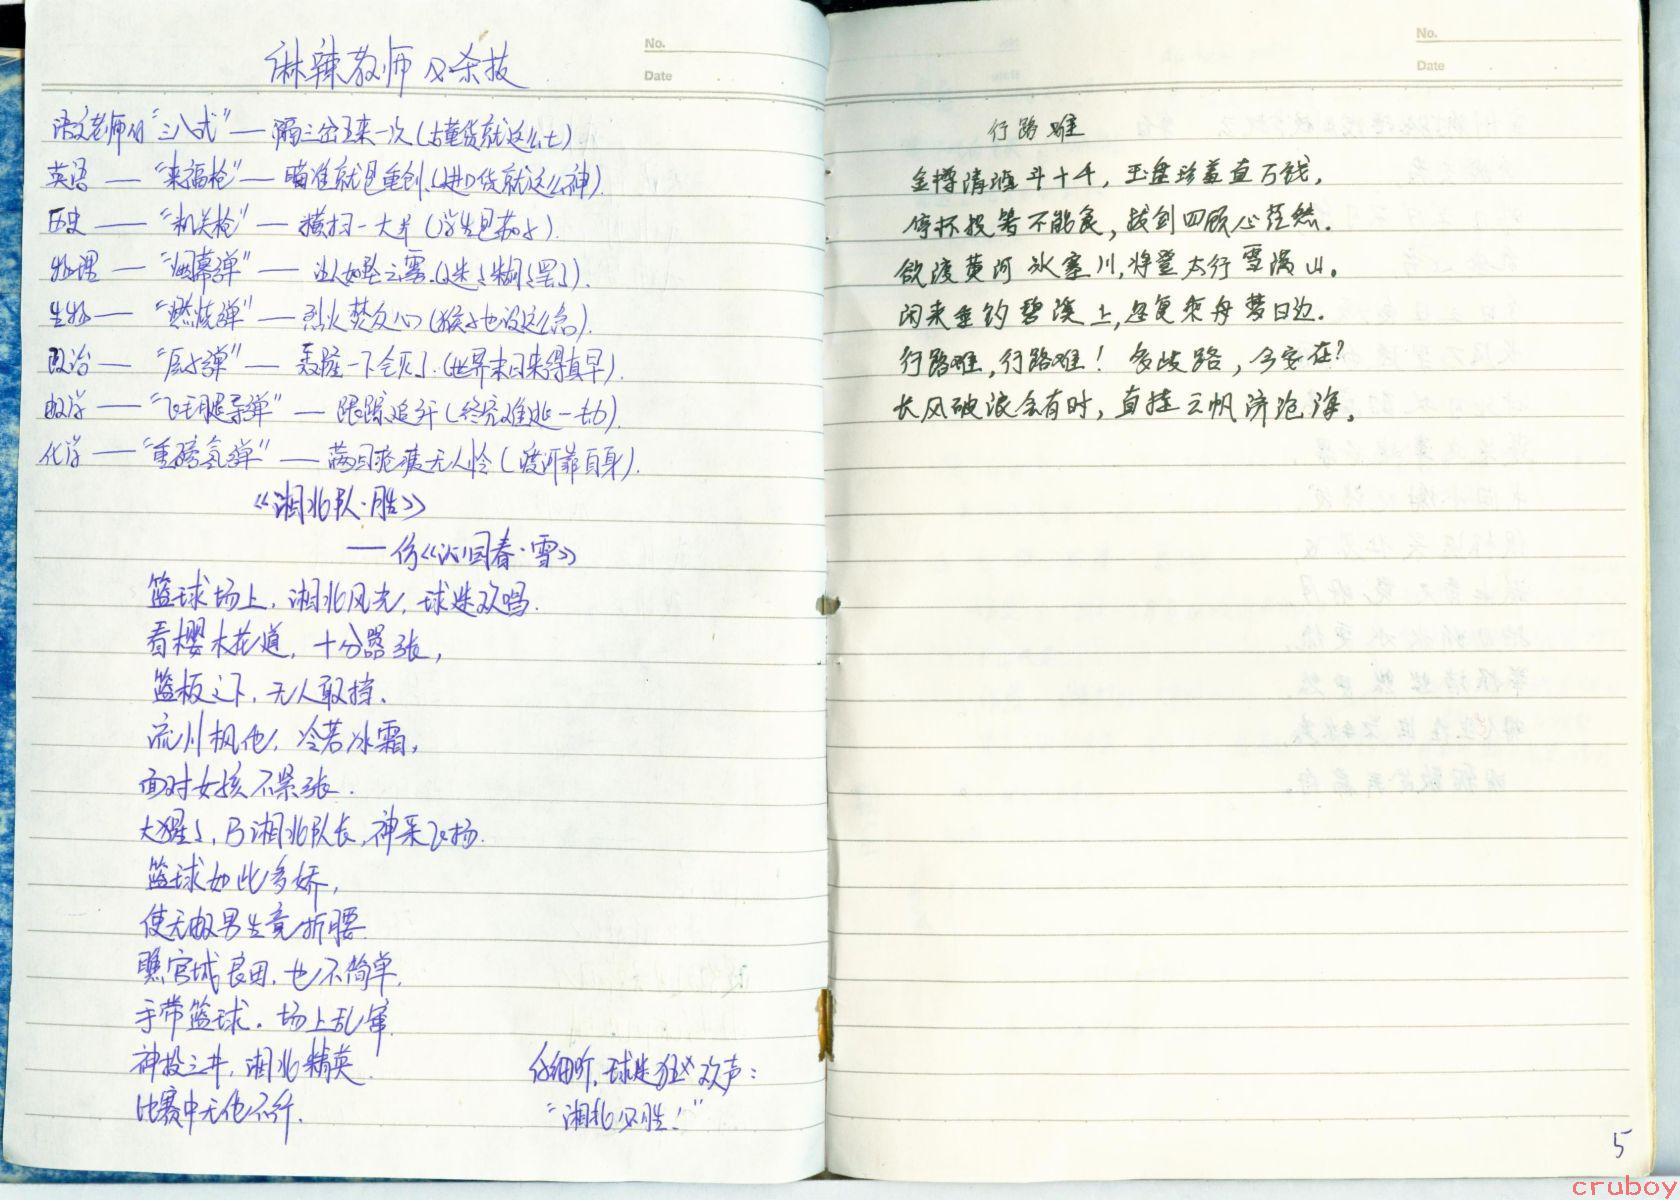 No.
Date
麻辣教师必杀技
语文老师的“三八式”——隔三岔五来一次(古董货就这么七)
英语——“来福枪”——瞄准就是重创.(进口货就这么神).
历史——“机关枪”——横扫一大片(学生是茄子).
物理——“烟幕弹”——让人如坠云雾.(迷迷糊糊罢了).
生物——“燃烧弹”——烈火焚众心(猴子也没这么急).
政治——“原子弹”——轰隆一下全灭了.(世界末日来得真早).
数学——“飞毛腿导弹”——跟踪追歼(终究难逃一劫).
化学——“重磅氢弹”——满目疮痍无人怜(渡河靠自身).
《湘北队·胜》
——仿《沁园春·雪》
篮球场上,湘北风光,球迷欢唱.
看樱木花道,十分嚣张,
篮板之下,无人敢挡.
流川枫他,冷若冰霜,
面对女孩不紧张.
大猩猩,乃湘北队长,神采飞扬.
篮球如此多娇,
使无数男生竞折腰
瞧宫城良田,也不简单,
手带篮球,场上乱窜.
神投三井,湘北精英.
比赛中无他不行.
仔细听,球迷狂欢声:
“湘北必胜!”
No.
Date
行路难
金樽清酒斗十千,玉盘珍羞直万钱,
停杯投箸不能食,拔剑四顾心茫然.
欲渡黄河冰塞川,将登太行雪满山。
闲来垂钓碧溪上,忽复乘舟梦日边.
行路难,行路难!多歧路,今安在?
长风破浪会有时,直挂云帆济沧海。
5
cruboy